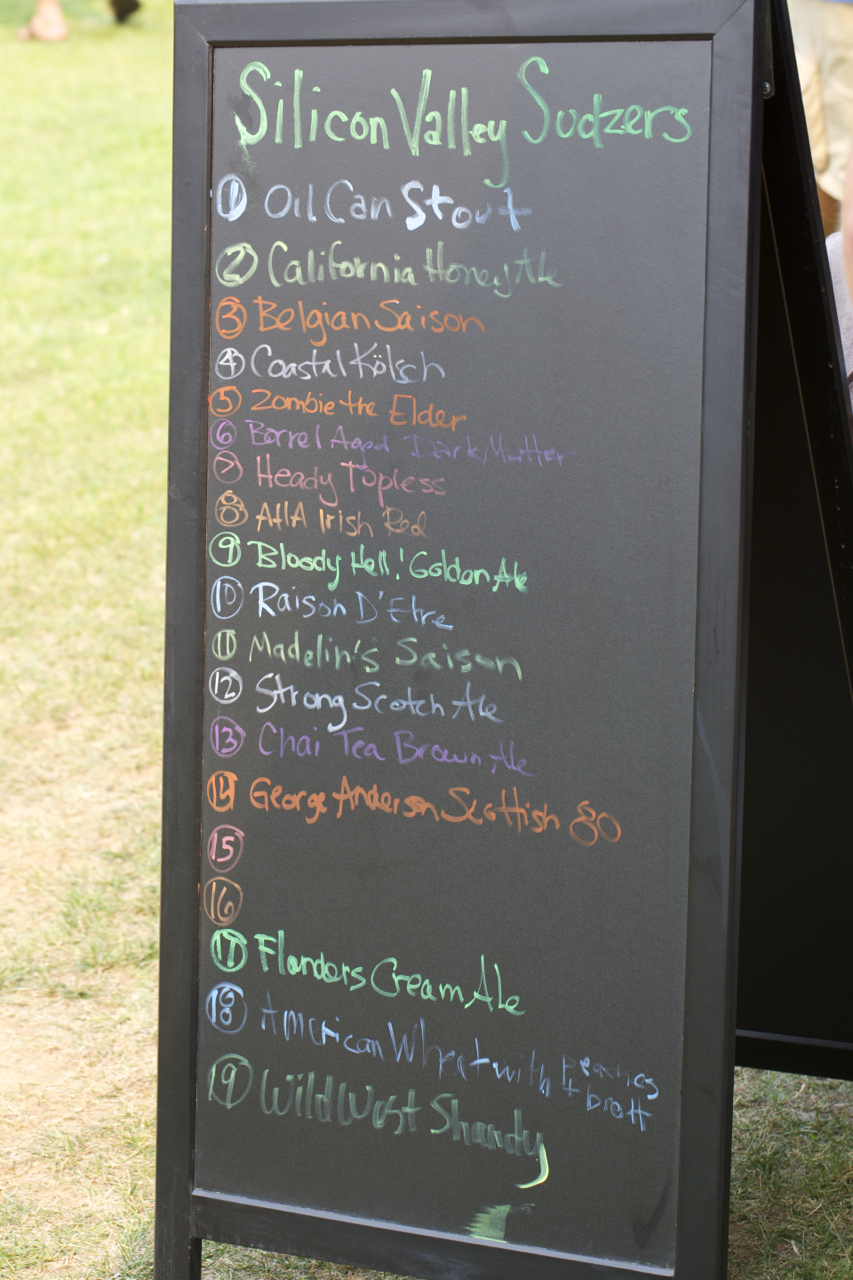 Silicon Valley Sudzers
1 Oil Can Stout
2 California Honey Ale
3 Belgian Saison
4 Coastal Kölsch
5 Zombie the Elder
6 Barrel Aged Dark Matter
7 Heady Topless
8 AHA Irish Red
9 Bloody Hell! Golden Ale
10 Raison D'Etre
11 Madelin's Saison
12 Strong Scotch Ale
13 Chai Tea Brown Ale
14 George Anderson Scottish 80
15
16
17 Flanders Cream Ale
18 American Wheat with peaches
+ brett
19 Wild West Shandy